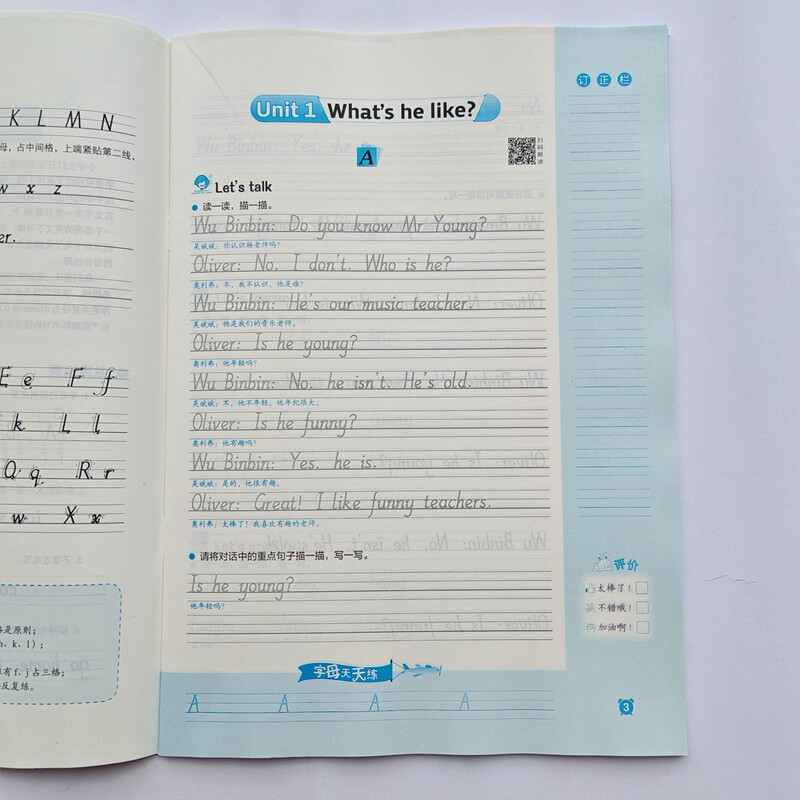 K L M N
母，占中间格，上端紧贴第二线，
w x z
er.
E e F f
k L l
Q q R r
w X x
格是原则；
h、k、l）；
有 f、j 占三格；
反复练。
Unit 1 What's he like?
A
扫码跟读
Let's talk
读一读，描一描。
Wu Binbin: Do you know Mr Young?
吴斌斌：你认识杨老师吗？
Oliver: No. I don't. Who is he?
奥利弗：不，我不认识。他是谁？
Wu Binbin: He's our music teacher.
吴斌斌：他是我们的音乐老师。
Oliver: Is he young?
奥利弗：他年轻吗？
Wu Binbin: No, he isn't. He's old.
吴斌斌：不，他不年轻。他年纪很大。
Oliver: Is he funny?
奥利弗：他有趣吗？
Wu Binbin: Yes, he is.
吴斌斌：是的，他很有趣。
Oliver: Great! I like funny teachers.
奥利弗：太棒了！我喜欢有趣的老师。
请将对话中的重点句子描一描，写一写。
Is he young?
他年轻吗？
字母天天练
A A A A
订正栏
评价
太棒了！
不错哦！
加油啊！
3